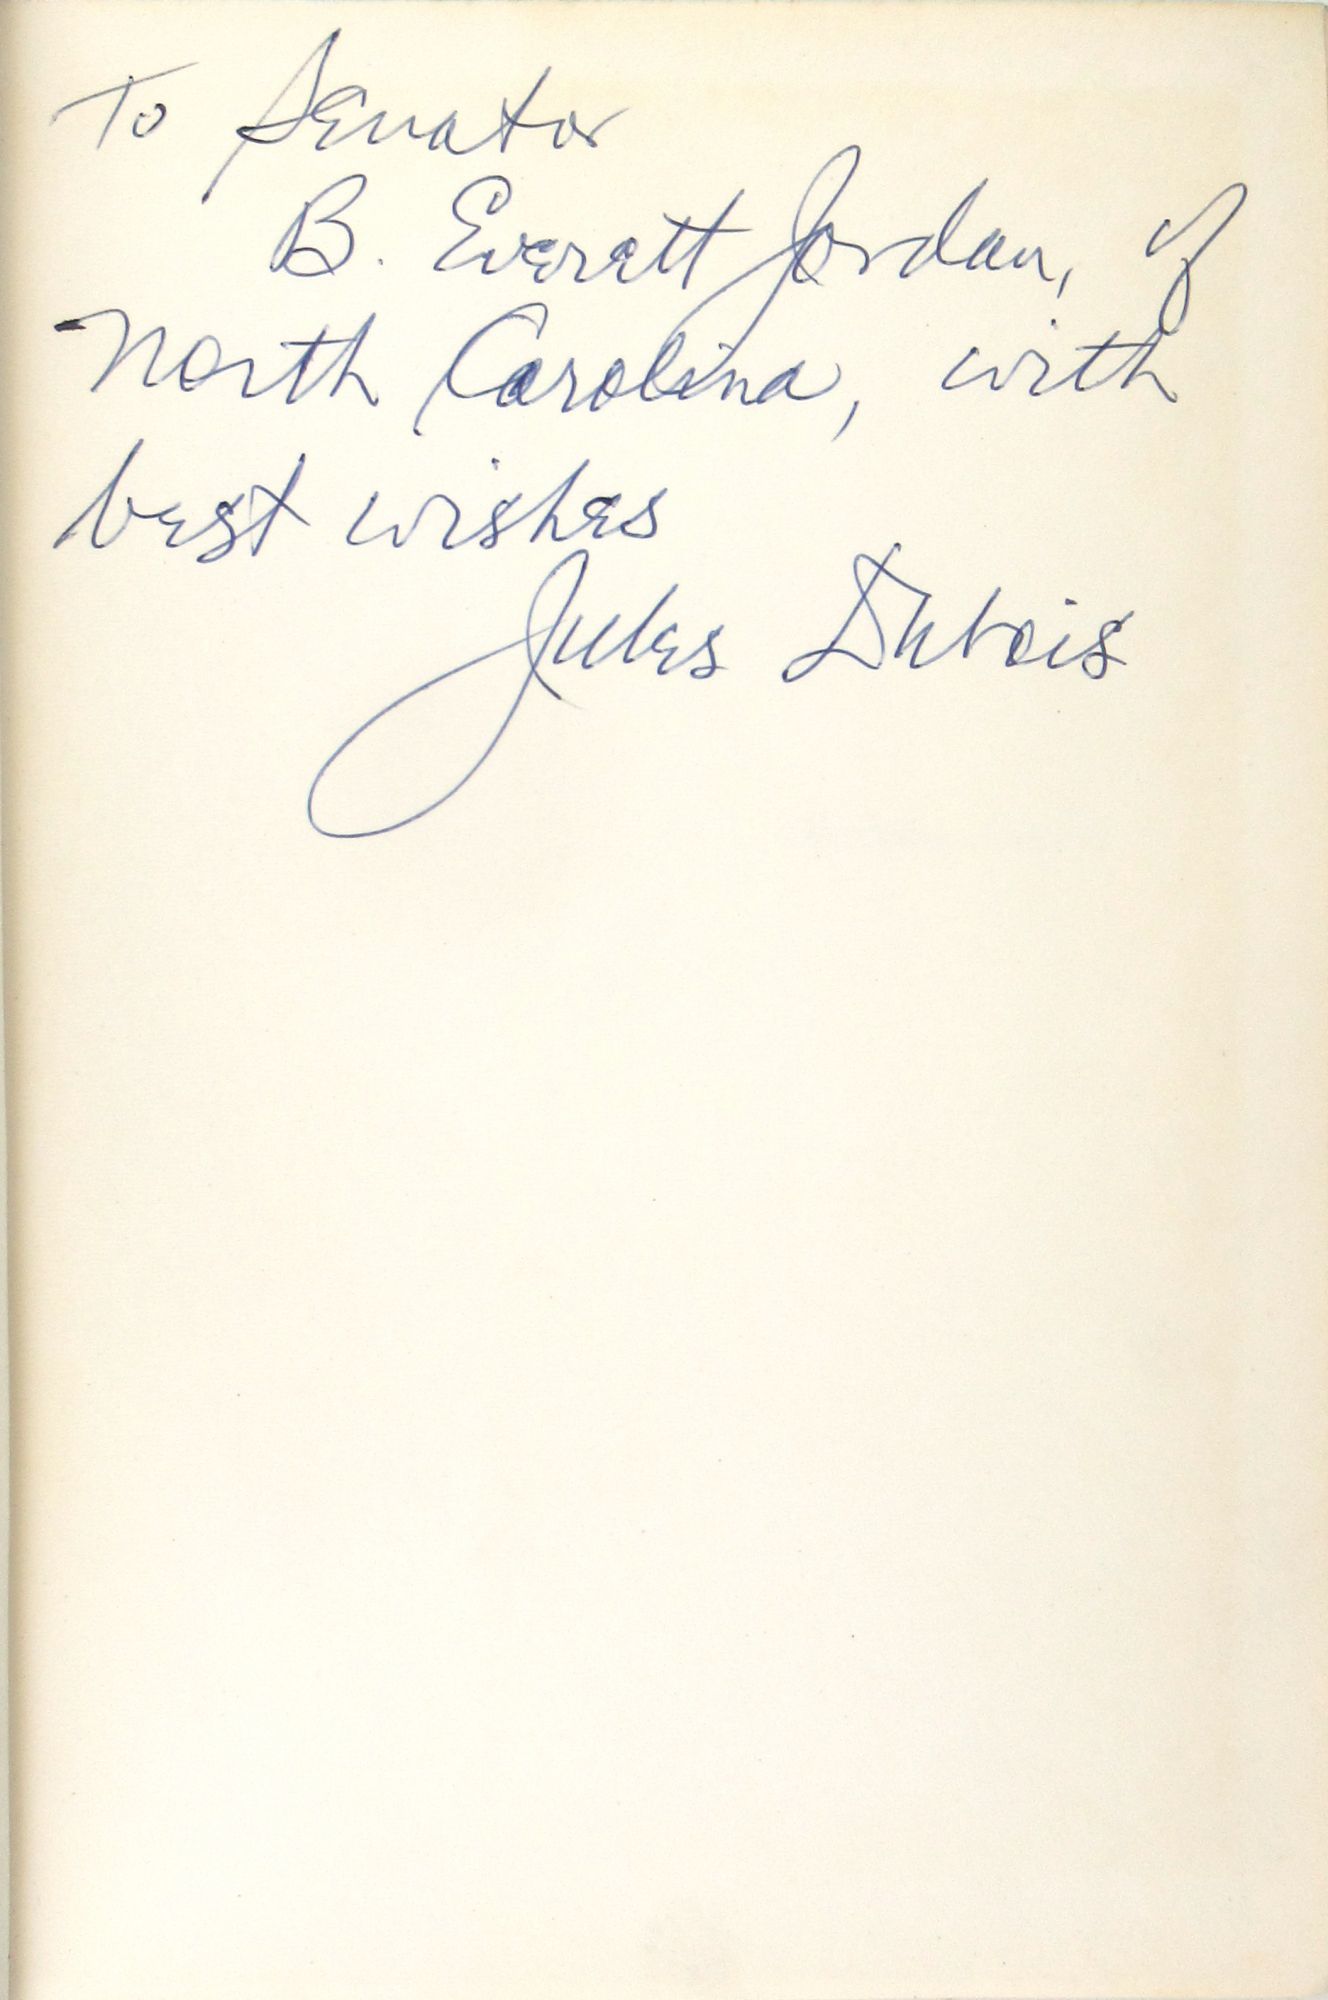 To Senator
B. Everett Jordan, of
North Carolina, with
best wishes
Jules Dubois